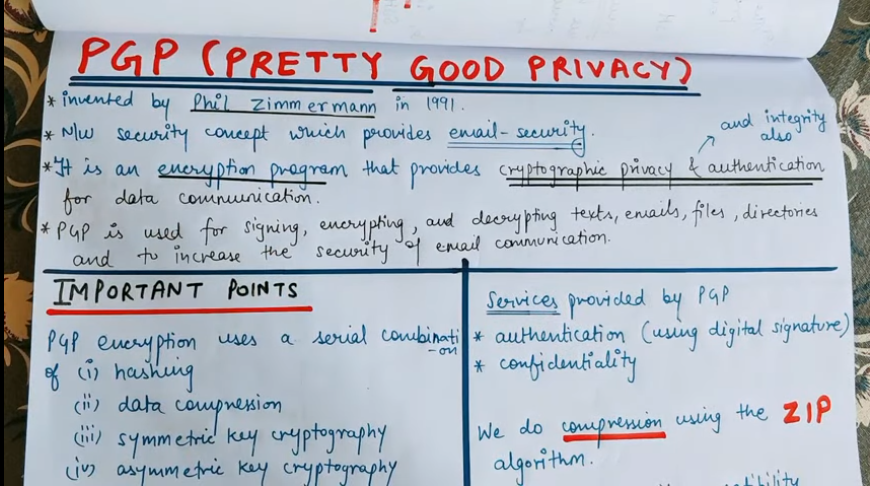 PGP (PRETTY GOOD PRIVACY)
* invented by Phil Zimmermann in 1991.
* N/w security concept which provides email-security.
and integrity also
* It is an encryption program that provides cryptographic privacy & authentication
for data communication.
* PGP is used for signing, encrypting, and decrypting texts, emails, files, directories
and to increase the security of email communication.
IMPORTANT POINTS
PGP encryption uses a serial combinati
-on
of (i) hashing
(ii) data compression
(iii) symmetric key cryptography
(iv) asymmetric key cryptography
Services provided by PGP
* authentication (using digital signature)
* confidentiality
We do compression using the ZIP
algorithm.